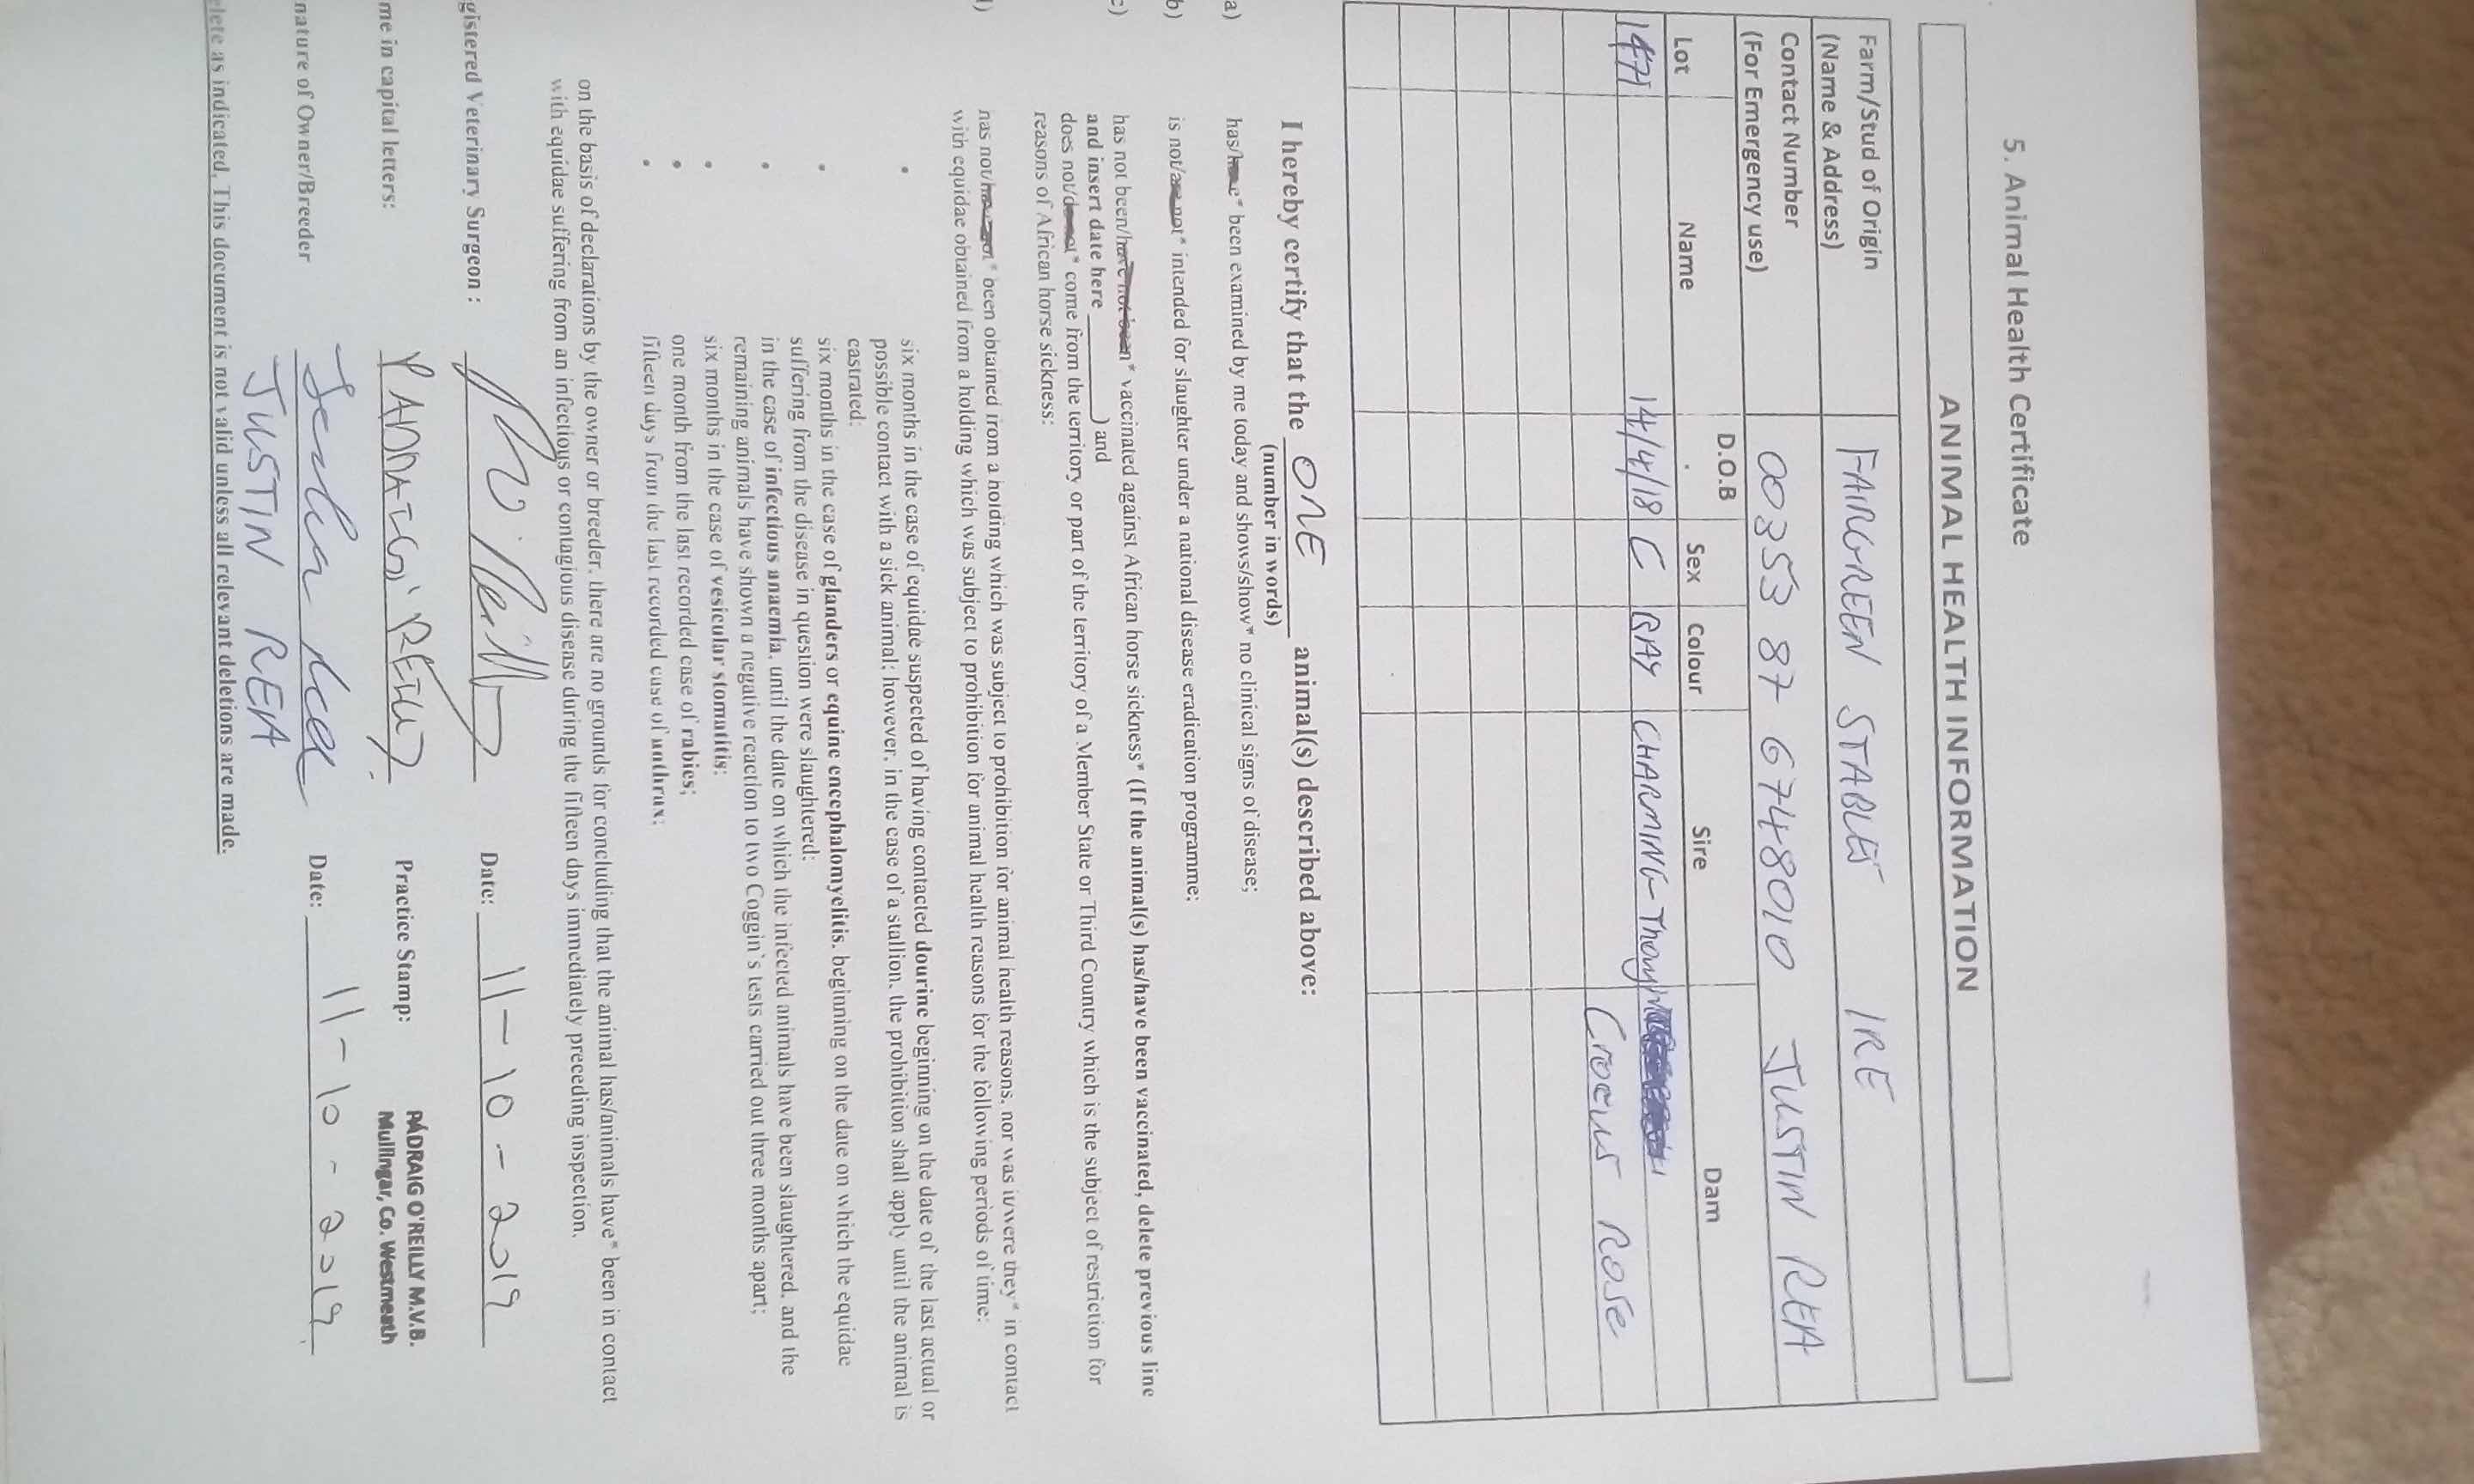 5. Animal Health Certificate
ANIMAL HEALTH INFORMATION
Farm/Stud of Origin FAIRGREEN STABLES IRE
(Name & Address)
Contact Number 00353 87 6748010 JUSTIN REA
(For Emergency use)
Lot Name D.O.B Sex Colour Sire Dam
1471 14/4/18 C BAY CHARMING Thought
Crocus Rose
I hereby certify that the ONE animal(s) described above:
(number in words)
a) has/have* been examined by me today and shows/show* no clinical signs of disease;
b) is not/are not* intended for slaughter under a national disease eradication programme;
c) has not been/have not been* vaccinated against African horse sickness* (If the animal(s) has/have been vaccinated, delete previous line
and insert date here ) and
does not/do not* come from the territory or part of the territory of a Member State or Third Country which is the subject of restriction for
reasons of African horse sickness:
has not/have not* been obtained from a holding which was subject to prohibition for animal health reasons, nor was it/were they* in contact
with equidae obtained from a holding which was subject to prohibition for animal health reasons for the following periods of time:
• six months in the case of equidae suspected of having contacted dourine beginning on the date of the last actual or
possible contact with a sick animal; however, in the case of a stallion, the prohibition shall apply until the animal is
castrated;
• six months in the case of glanders or equine encephalomyelitis, beginning on the date on which the equidae
suffering from the disease in question were slaughtered;
• in the case of infectious anaemia, until the date on which the infected animals have been slaughtered, and the
remaining animals have shown a negative reaction to two Coggin's tests carried out three months apart;
• six months in the case of vesicular stomatitis;
• one month from the last recorded case of rabies;
• fifteen days from the last recorded case of anthrax;
on the basis of declarations by the owner or breeder, there are no grounds for concluding that the animal has/animals have* been in contact
with equidae suffering from an infectious or contagious disease during the fifteen days immediately preceding inspection.
gistered Veterinary Surgeon : Date: 11-10-2019
me in capital letters: PADRAIG O'REILLY Practice Stamp: PÁDRAIG O'REILLY M.V.B.
Mullingar, Co. Westmeath
nature of Owner/Breeder Justin Rea Date: 11-10-2019
JUSTIN REA
elete as indicated. This document is not valid unless all relevant deletions are made.